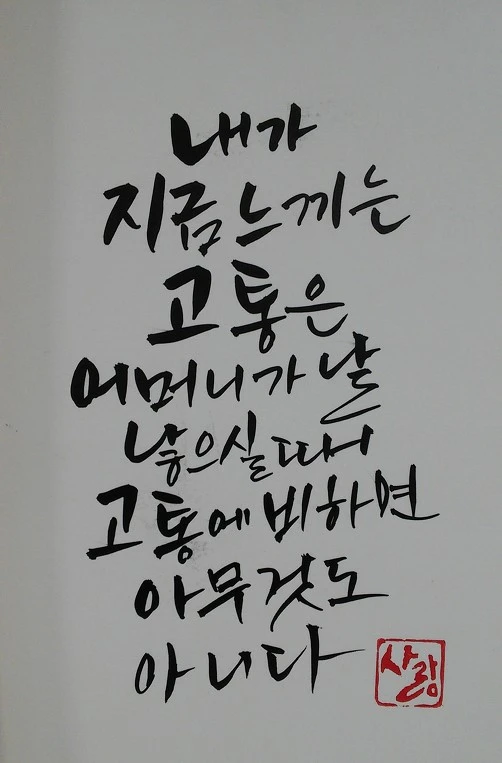 내가
지금 느끼는
고통은
어머니가 날
낳으실 때
고통에 비하면
아무것도
아니다
사랑